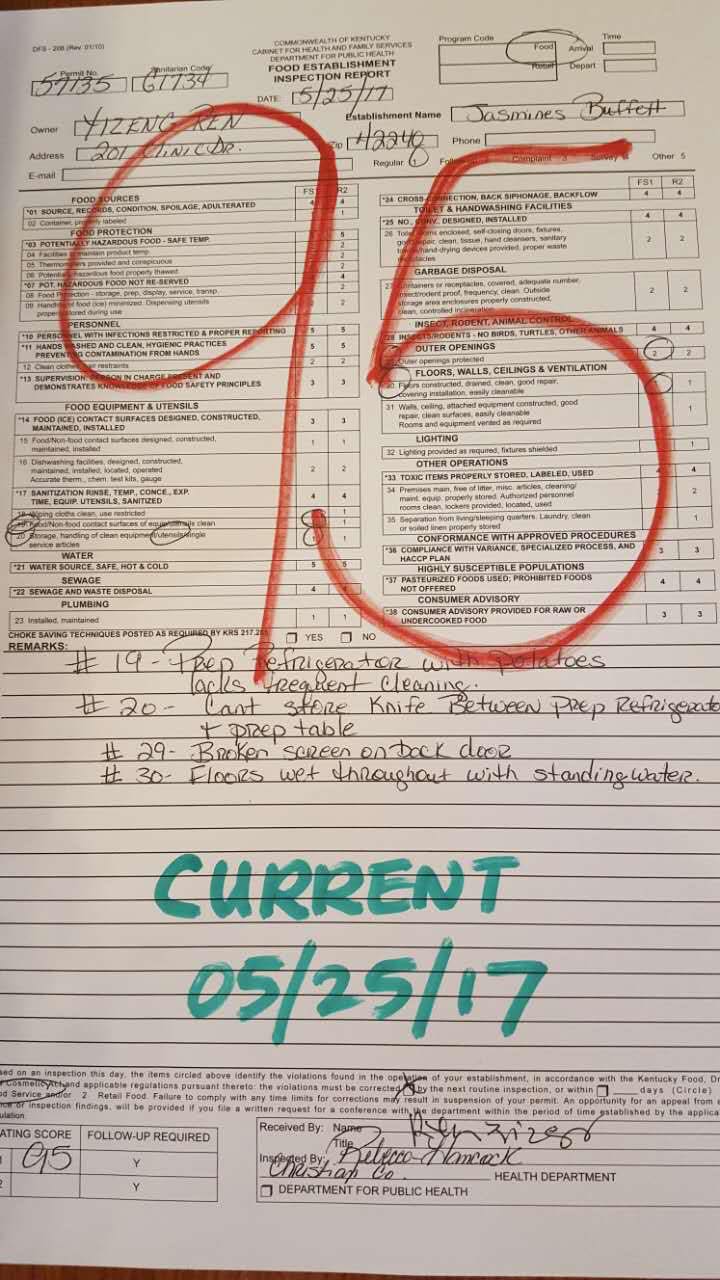 DFS - 208 (Rev. 01/10)
COMMONWEALTH OF KENTUCKY
CABINET FOR HEALTH AND FAMILY SERVICES
DEPARTMENT FOR PUBLIC HEALTH
FOOD ESTABLISHMENT
INSPECTION REPORT
Program Code
Food
Retail
Time
Arrival
Depart
Permit No.
57135
Sanitarian Code
61734
DATE: 5/25/17
Owner YIZENG REN
Establishment Name Jasmines Buffett
Address 201 CLINIC DR.
Zip 42240
Phone
E-mail
Regular 1 Complaint 3 Other 5
95
FS1 R2
FOOD SOURCES
*01 SOURCE, RECORDS, CONDITION, SPOILAGE, ADULTERATED 4 4
02 Container, properly labeled 1
FOOD PROTECTION
*03 POTENTIALLY HAZARDOUS FOOD - SAFE TEMP. 5
04 Facilities to maintain product temp. 2
05 Thermometers provided and conspicuous 2
06 Potentially hazardous food properly thawed 2
*07 POT. HAZARDOUS FOOD NOT RE-SERVED 4
08 Food Protection - storage, prep, display, service, transp. 2
09 Handling of food (ice) minimized. Dispensing utensils
properly stored during use 2
PERSONNEL
*10 PERSONNEL WITH INFECTIONS RESTRICTED & PROPER REPORTING 5 5
*11 HANDS WASHED AND CLEAN, HYGIENIC PRACTICES
PREVENTING CONTAMINATION FROM HANDS 5 5
12 Clean clothes, hair restraints 2 2
*13 SUPERVISION, PERSON IN CHARGE PRESENT AND
DEMONSTRATES KNOWLEDGE OF FOOD SAFETY PRINCIPLES 3 3
FOOD EQUIPMENT & UTENSILS
*14 FOOD (ICE) CONTACT SURFACES DESIGNED, CONSTRUCTED,
MAINTAINED, INSTALLED 3 3
15 Food/Non-food contact surfaces designed, constructed,
maintained, installed 1 1
16 Dishwashing facilities, designed, constructed,
maintained, installed, located, operated
Accurate therm., chem. test kits, gauge 2 2
*17 SANITIZATION RINSE, TEMP., CONCE., EXP.
TIME, EQUIP. UTENSILS, SANITIZED 4 4
18 Wiping cloths clean, use restricted 1
19 Food/Non-food contact surfaces of equip/utensils clean 1
20 Storage, handling of clean equipment/utensils/single
service articles 1 1
WATER
*21 WATER SOURCE, SAFE, HOT & COLD 5 5
SEWAGE
*22 SEWAGE AND WASTE DISPOSAL 4 4
PLUMBING
23 Installed, maintained 1 1
CHOKE SAVING TECHNIQUES POSTED AS REQUIRED BY KRS 217.285 YES NO
FS1 R2
*24 CROSS-CONNECTION, BACK SIPHONAGE, BACKFLOW 4 4
TOILET & HANDWASHING FACILITIES
*25 NO., CONV., DESIGNED, INSTALLED 4 4
26 Toilet rooms enclosed, self-closing doors, fixtures,
good repair, clean, tissue, hand cleansers, sanitary
towels/hand-drying devices provided, proper waste
receptacles 2 2
GARBAGE DISPOSAL
27 Containers or receptacles, covered, adequate number,
insect/rodent proof, frequency, clean. Outside
storage area enclosures properly constructed,
clean, controlled incineration 2 2
INSECT, RODENT, ANIMAL CONTROL
*28 INSECTS/RODENTS - NO BIRDS, TURTLES, OTHER ANIMALS 4 4
OUTER OPENINGS
29 Outer openings protected 2 2
FLOORS, WALLS, CEILINGS & VENTILATION
30 Floors constructed, drained, clean, good repair,
covering installation, easily cleanable 1
31 Walls, ceiling, attached equipment constructed, good
repair, clean surfaces, easily cleanable
Rooms and equipment vented as required 1
LIGHTING
32 Lighting provided as required, fixtures shielded 1
OTHER OPERATIONS
*33 TOXIC ITEMS PROPERLY STORED, LABELED, USED 4 4
34 Premises main, free of litter, misc. articles, cleaning/
maint. equip. properly stored. Authorized personnel
rooms clean, lockers provided, located, used 2
35 Separation from living/sleeping quarters. Laundry, clean
or soiled linen properly stored 1
CONFORMANCE WITH APPROVED PROCEDURES
*36 COMPLIANCE WITH VARIANCE, SPECIALIZED PROCESS, AND
HACCP PLAN 3 3
HIGHLY SUSCEPTIBLE POPULATIONS
*37 PASTEURIZED FOODS USED; PROHIBITED FOODS
NOT OFFERED 4 4
CONSUMER ADVISORY
*38 CONSUMER ADVISORY PROVIDED FOR RAW OR
UNDERCOOKED FOOD 3 3
REMARKS:
# 19 - Prep Refrigerator with potatoes
lacks frequent cleaning.
# 20 - Cant store Knife Between Prep Refrigerato
+ prep table
# 29 - Broken screen on back door
# 30 - Floors wet throughout with standing water.
CURRENT
05/25/17
sed on an inspection this day, the items circled above identify the violations found in the operation of your establishment, in accordance with the Kentucky Food, Dr
Cosmetic Act and applicable regulations pursuant thereto: the violations must be corrected by the next routine inspection, or within days (Circle)
od Service and/or 2 Retail Food. Failure to comply with any time limits for corrections may result in suspension of your permit. An opportunity for an appeal from
nce or inspection findings, will be provided if you file a written request for a conference with the department within the period of time established by the applica
ulation.
ATING SCORE FOLLOW-UP REQUIRED
1 95 Y
2 Y
Received By: Name
Title
Inspected By: Rebecca Hancock
Christian Co. HEALTH DEPARTMENT
DEPARTMENT FOR PUBLIC HEALTH